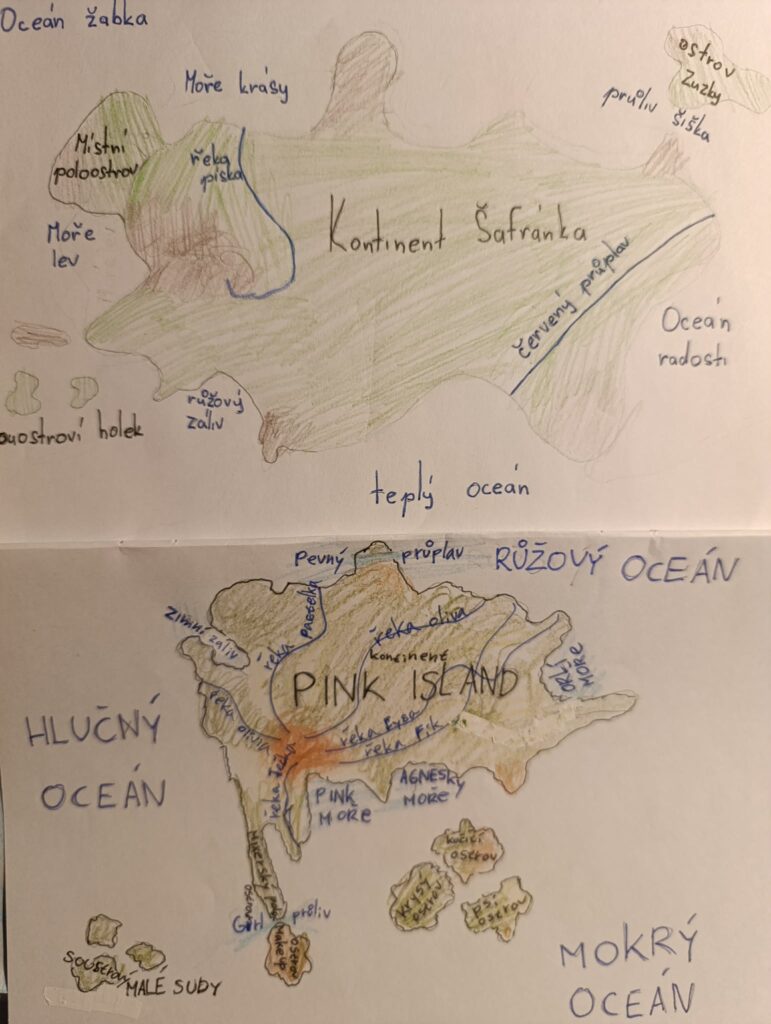 Oceán žabka
Moře krásy
ostrov
Zuzby
průliv
šiška
Místní
poloostrov
řeka
píska
Moře
lev
Kontinent Šafránka
červený průplav
Oceán
radosti
růžový
záliv
ouostroví holek
teplý oceán
Pevný průplav
RŮŽOVÝ OCEÁN
Zimní záliv
řeka
řeka oliva
kontinent
PINK ISLAND
MOŘE
HLUČNÝ
OCEÁN
řeka
řeka Ryba
řeka Fík
řeka
PINK
MOŘE
AGNESKY
MOŘE
KOČIČÍ
OSTROV
KRYSÝ
OSTROV
PSÍ
OSTROV
Girl průliv
Make up
OSTROV
SOUSTROVÍ
MALÉ SUBY
MOKRÝ
OCEÁN